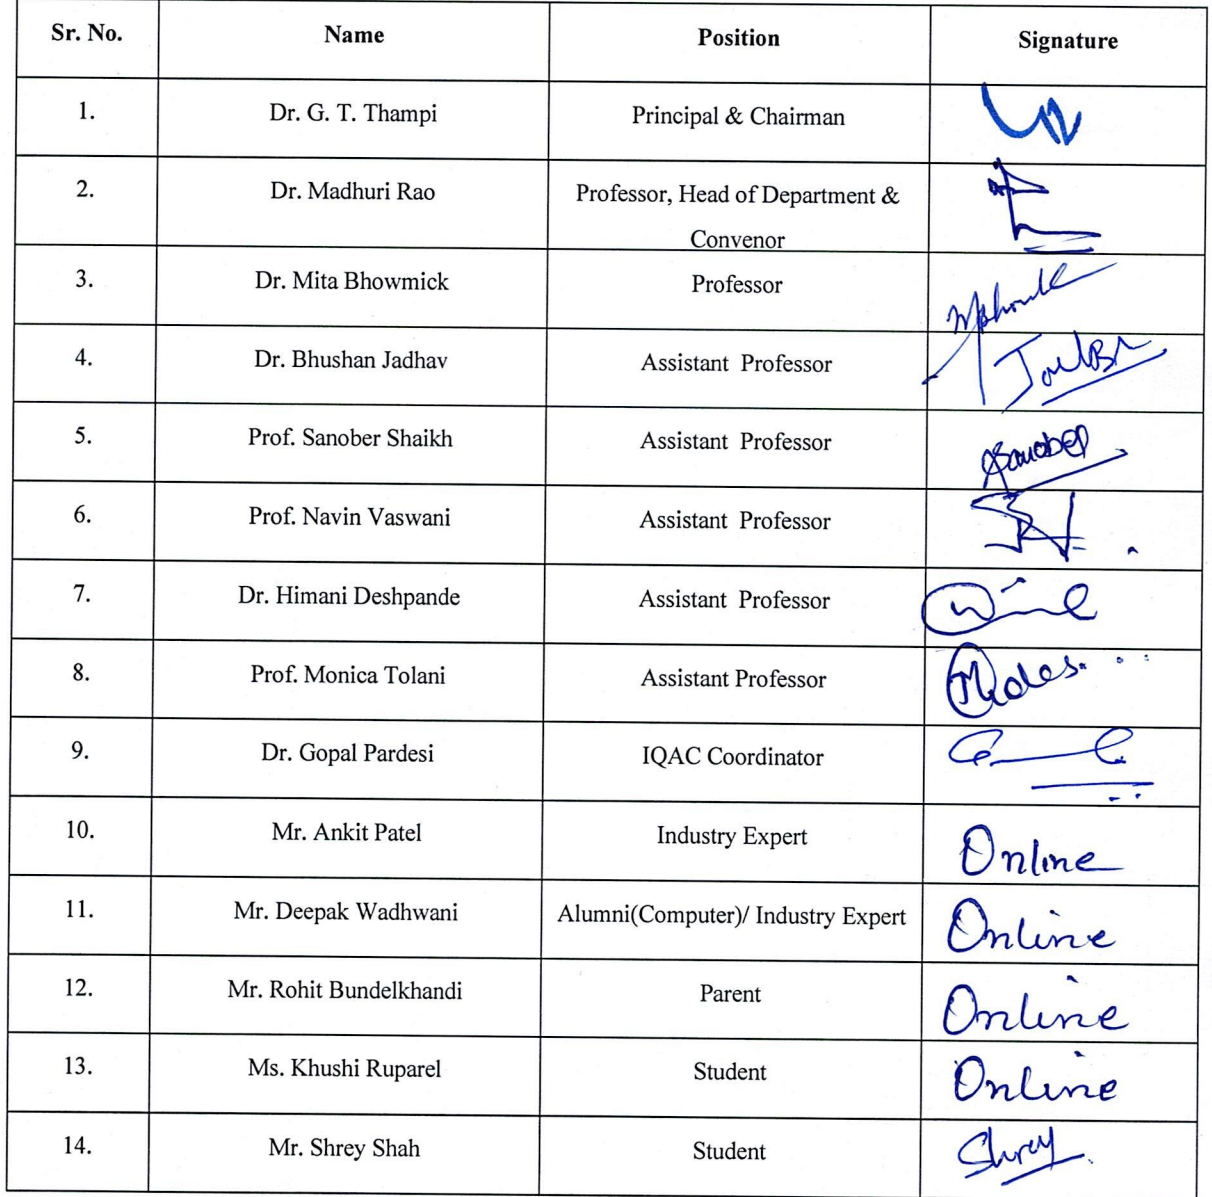 Sr. No. Name Position Signature
1. Dr. G. T. Thampi Principal & Chairman
2. Dr. Madhuri Rao Professor, Head of Department &
Convenor
3. Dr. Mita Bhowmick Professor
4. Dr. Bhushan Jadhav Assistant Professor
5. Prof. Sanober Shaikh Assistant Professor Sanober
6. Prof. Navin Vaswani Assistant Professor
7. Dr. Himani Deshpande Assistant Professor
8. Prof. Monica Tolani Assistant Professor
9. Dr. Gopal Pardesi IQAC Coordinator
10. Mr. Ankit Patel Industry Expert Online
11. Mr. Deepak Wadhwani Alumni(Computer)/ Industry Expert Online
12. Mr. Rohit Bundelkhandi Parent Online
13. Ms. Khushi Ruparel Student Online
14. Mr. Shrey Shah Student Shrey